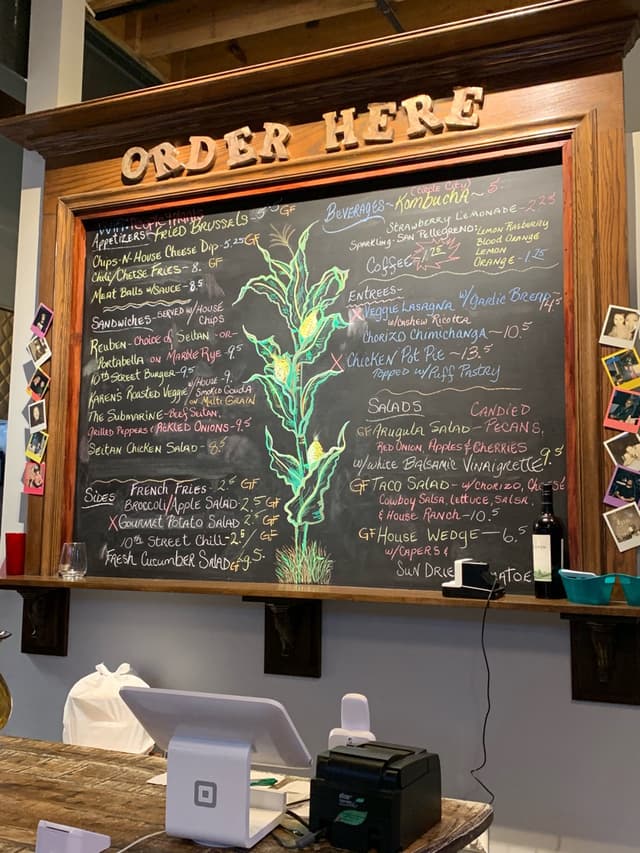 ORDER HERE
Appetizers- Fried Brussels- GF
Chips-N-House Cheese Dip- 5.25 GF
Chili/Cheese Fries- 8. GF
Meat Balls w/Sauce- 8.5
Sandwiches- served w/House
Chips
Reuben- Choice of Seitan -or-
Portabella on Marble Rye- 9.5
10th Street Burger- 9.5
Karen's Roasted Veggie w/House Smoked Gouda - 9.
on Multi Grain
The Submarine- Seitan,
Grilled Peppers & Pickled Onions- 9.5
Seitan Chicken Salad- 8.5
Sides French Fries- GF
Broccoli/Apple Salad- 2.5 GF
X Gourmet Potato Salad 2.5 GF
10th Street Chili- GF
Fresh Cucumber Salad GF
Beverages- (Purple City) Kombucha~ 5.
Strawberry Lemonade- 2.25
Sparkling- San Pellegrino: Lemon Raspberry
Blood Orange
Lemon
Orange- 1.75
Coffee 1.75
Entrees-
X Veggie Lasagna w/Garlic Bread
w/Cashew Ricotta
Chorizo Chimichanga~ 10.5
X Chicken Pot Pie~ 13.5
Topped w/Puff Pastry
Salads
GF Arugula Salad- Candied Pecans,
Red Onion, Apples & Cherries
w/White Balsamic Vinaigrette 9.5
GF Taco Salad- w/Chorizo, Cheese
Cowboy Salsa, Lettuce, Salsa,
& House Ranch- 10.5
GF House Wedge- 6.5
w/Capers &
Sun Drie